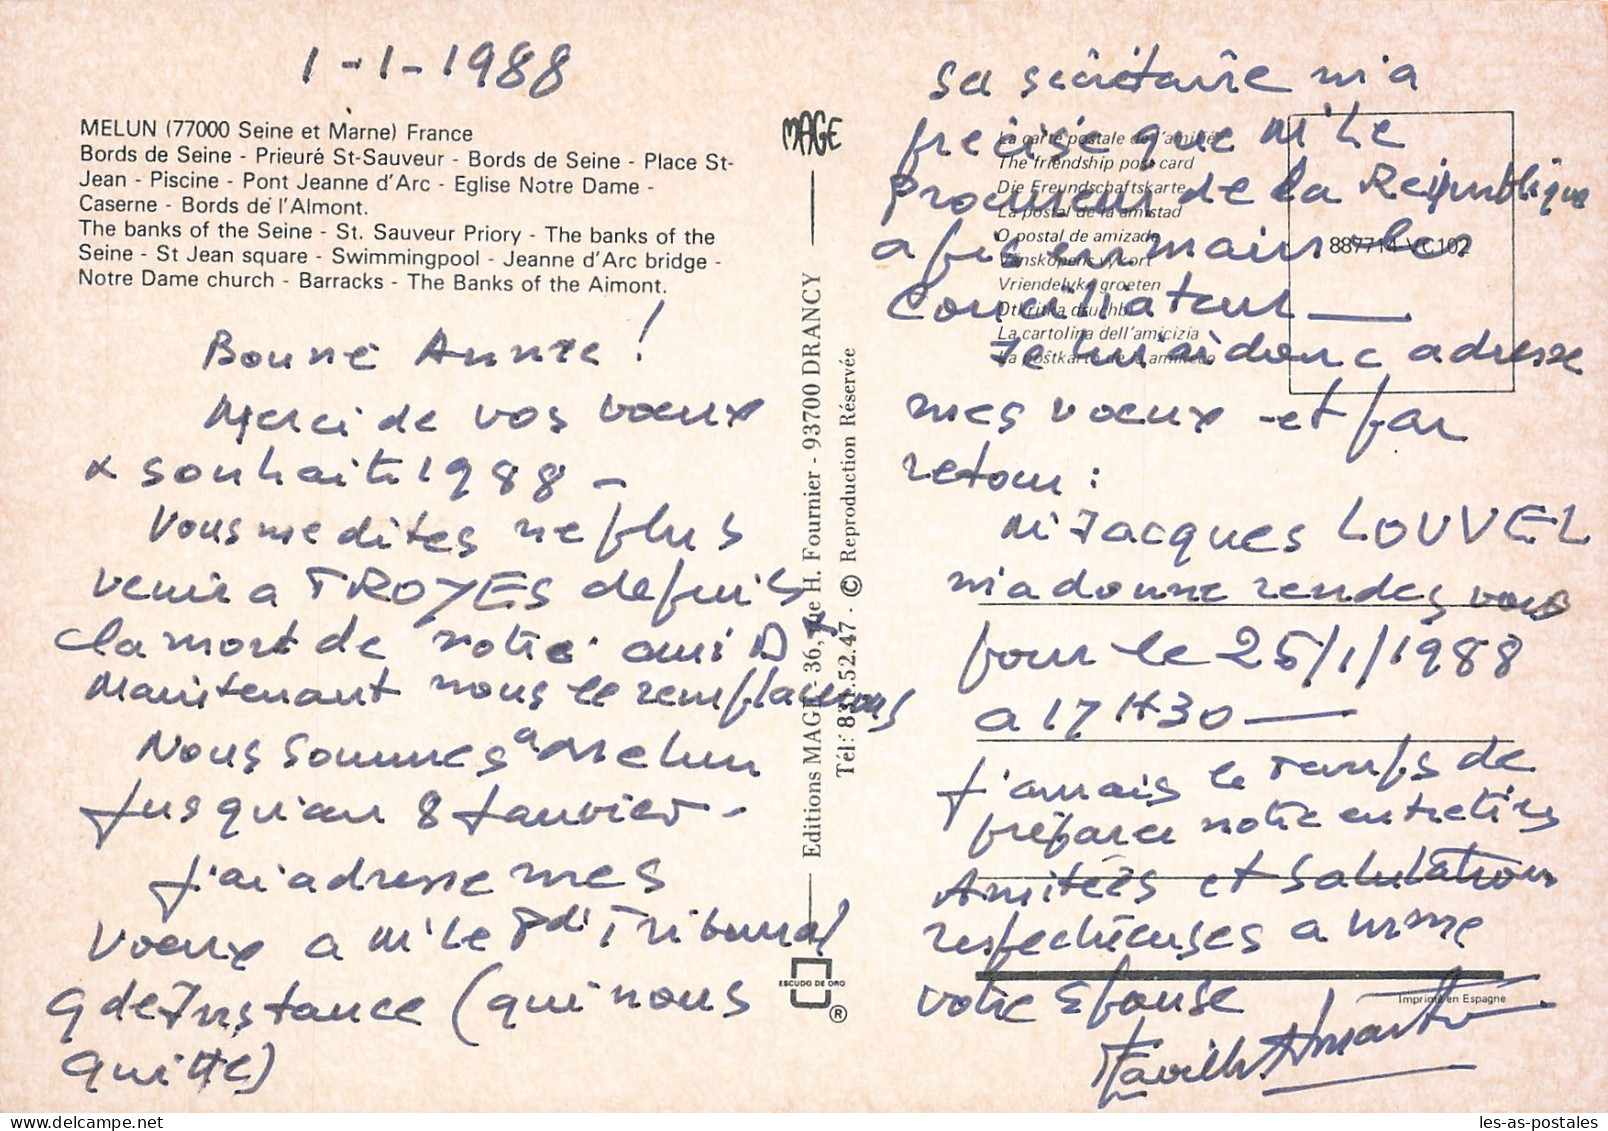 1-1-1988
MELUN (77000 Seine et Marne) France
Bords de Seine - Prieuré St-Sauveur - Bords de Seine - Place St-
Jean - Piscine - Pont Jeanne d'Arc - Eglise Notre Dame -
Caserne - Bords de l'Almont.
The banks of the Seine - St. Sauveur Priory - The banks of the
Seine - St Jean square - Swimmingpool - Jeanne d'Arc bridge -
Notre Dame church - Barracks - The Banks of the Aimont.
Bonne Année !
Merci de vos voeux
& souhaits 1988 -
Vous me dites ne plus
venir a TROYES depuis
la mort de notre ami D
Maintenant nous le remplaçons
Nous sommes a Melun
jusqu'au 8 Janvier -
J'ai adresse mes
voeux a M' le Pdt Tribunal
Gde Instance (qui nous
quitte)
MAGE
Editions MAGE - 36, rue H. Fournier - 93700 DRANCY
Tél: 831.52.47 - © Reproduction Réservée
ESCUDO DE ORO
®
sa sécrétaire m'a
précisé que M' Le
Procureur de la République
a
Conciliateur —
Je lui ai donc adresse
mes voeux et par
retour :
M' Jacques LOUVEL
m'a donne rendes vous
pour le 25/1/1988
a 17H30 —
J'aurais le temps de
préparer notre entretien
Amitiés et salutations
respectueuses a Mme
votre Epouse
La carte postale de l'amitié
The friendship post card
Die Freundschaftskarte
La postal de la amistad
O postal de amizade
Vänskapens vykort
Vriendelyke groeten
Otkritka druchbi
La cartolina dell'amicizia
La poŝtkarto de la amikeco
887714 VC102
Imprimé en Espagne
les-as-postales